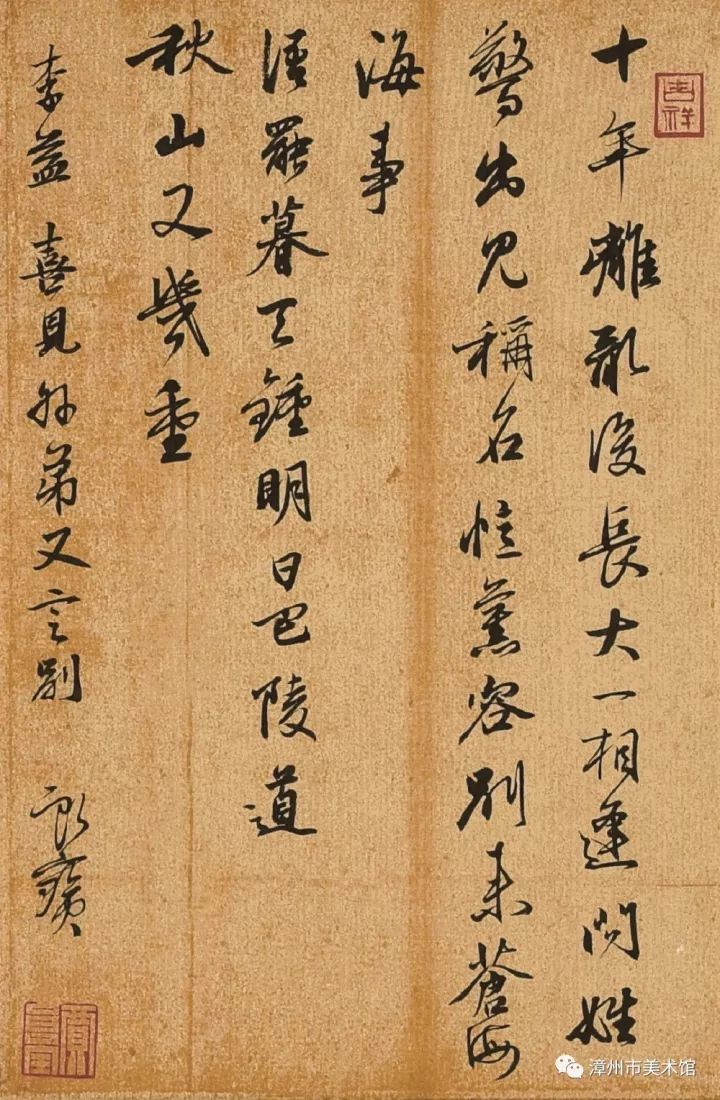 吉祥
十年離亂後長大一相逢問姓
驚出見稱名憶舊容別来蒼海
海事
語罷暮天鍾明日巴陵道
秋山又幾重
李益 喜見外弟又言別
漳州市美术馆